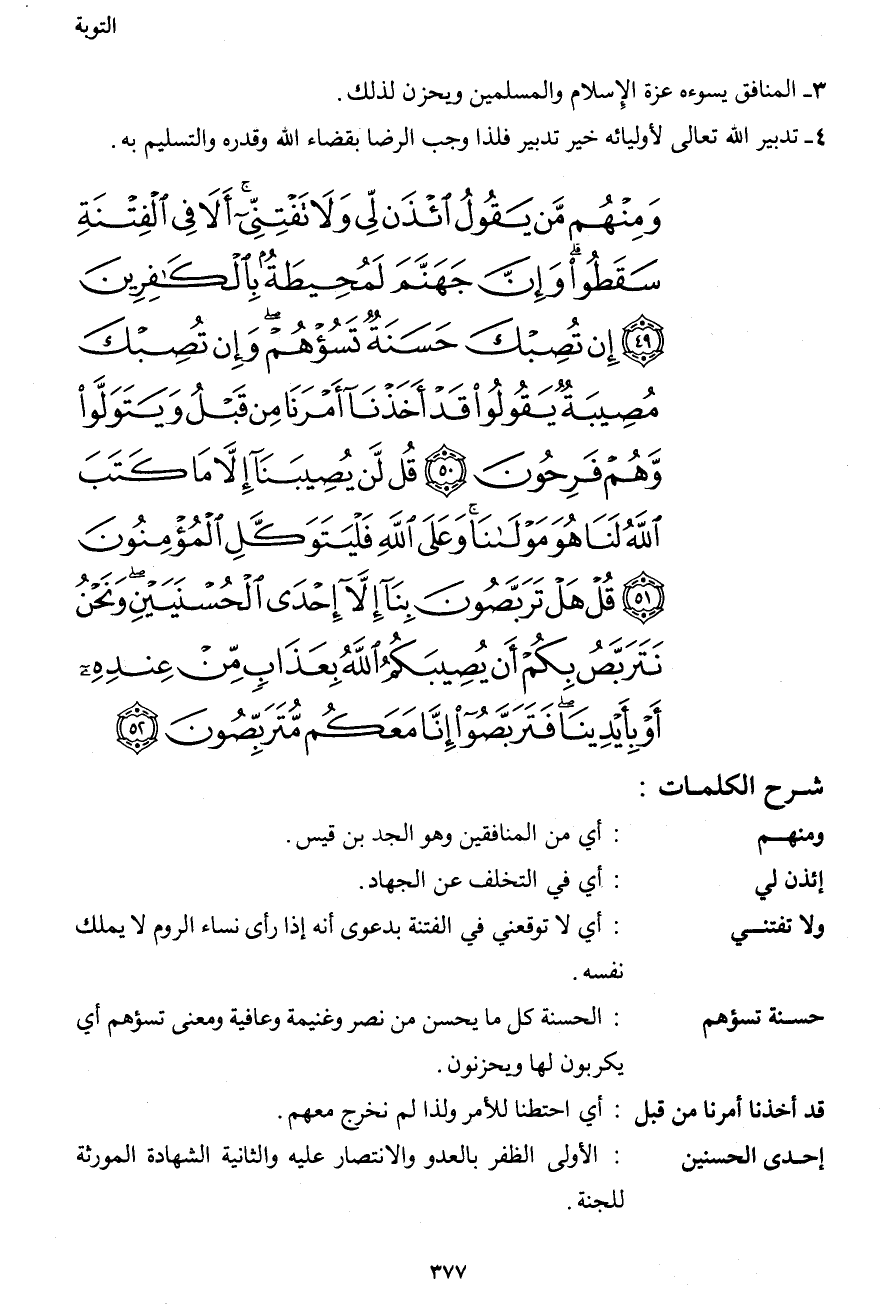 التوبة
٣ـ المنافق يسوءه عزة الإسلام والمسلمين ويحزن لذلك.
٤ـ تدبير الله تعالى لأوليائه خير تدبير فلذا وجب الرضا بقضاء الله وقدره والتسليم به.
وَمِنْهُم مَّن يَقُولُ ٱئْذَن لِّى وَلَا تَفْتِنِّىٓ ۚ أَلَا فِى ٱلْفِتْنَةِ
سَقَطُوا۟ ۗ وَإِنَّ جَهَنَّمَ لَمُحِيطَةٌۢ بِٱلْكَـٰفِرِينَ
﴿٤٩﴾ إِن تُصِبْكَ حَسَنَةٌ تَسُؤْهُمْ ۖ وَإِن تُصِبْكَ
مُصِيبَةٌ يَقُولُوا۟ قَدْ أَخَذْنَآ أَمْرَنَا مِن قَبْلُ وَيَتَوَلَّوا۟
وَّهُمْ فَرِحُونَ ﴿٥٠﴾ قُل لَّن يُصِيبَنَآ إِلَّا مَا كَتَبَ
ٱللَّهُ لَنَا هُوَ مَوْلَىٰنَا ۚ وَعَلَى ٱللَّهِ فَلْيَتَوَكَّلِ ٱلْمُؤْمِنُونَ
﴿٥١﴾ قُلْ هَلْ تَرَبَّصُونَ بِنَآ إِلَّآ إِحْدَى ٱلْحُسْنَيَيْنِ ۖ وَنَحْنُ
نَتَرَبَّصُ بِكُمْ أَن يُصِيبَكُمُ ٱللَّهُ بِعَذَابٍ مِّنْ عِندِهِۦٓ
أَوْ بِأَيْدِينَا ۖ فَتَرَبَّصُوٓا۟ إِنَّا مَعَكُم مُّتَرَبِّصُونَ ﴿٥٢﴾
شرح الكلمات :
ومنهم : أي من المنافقين وهو الجد بن قيس.
إئذن لي : أي في التخلف عن الجهاد.
ولا تفتني : أي لا توقعني في الفتنة بدعوى أنه إذا رأى نساء الروم لا يملك
نفسه.
حسنة تسؤهم : الحسنة كل ما يحسن من نصر وغنيمة وعافية ومعنى تسؤهم أي
يكربون لها ويحزنون.
قد أخذنا أمرنا من قبل : أي احتطنا للأمر ولذا لم نخرج معهم.
إحدى الحسنين : الأولى الظفر بالعدو والانتصار عليه والثانية الشهادة المورثة
للجنة.
٣٧٧